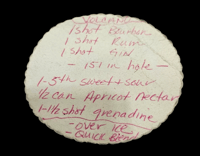 Volcano
1 shot Bourbon
1 shot Rum
1 shot Gin
- 151 in hole -
1- 5th sweet + sour
1/2 can Apricot Nectar
1-1/2 shot grenadine
- over ice
- Quick